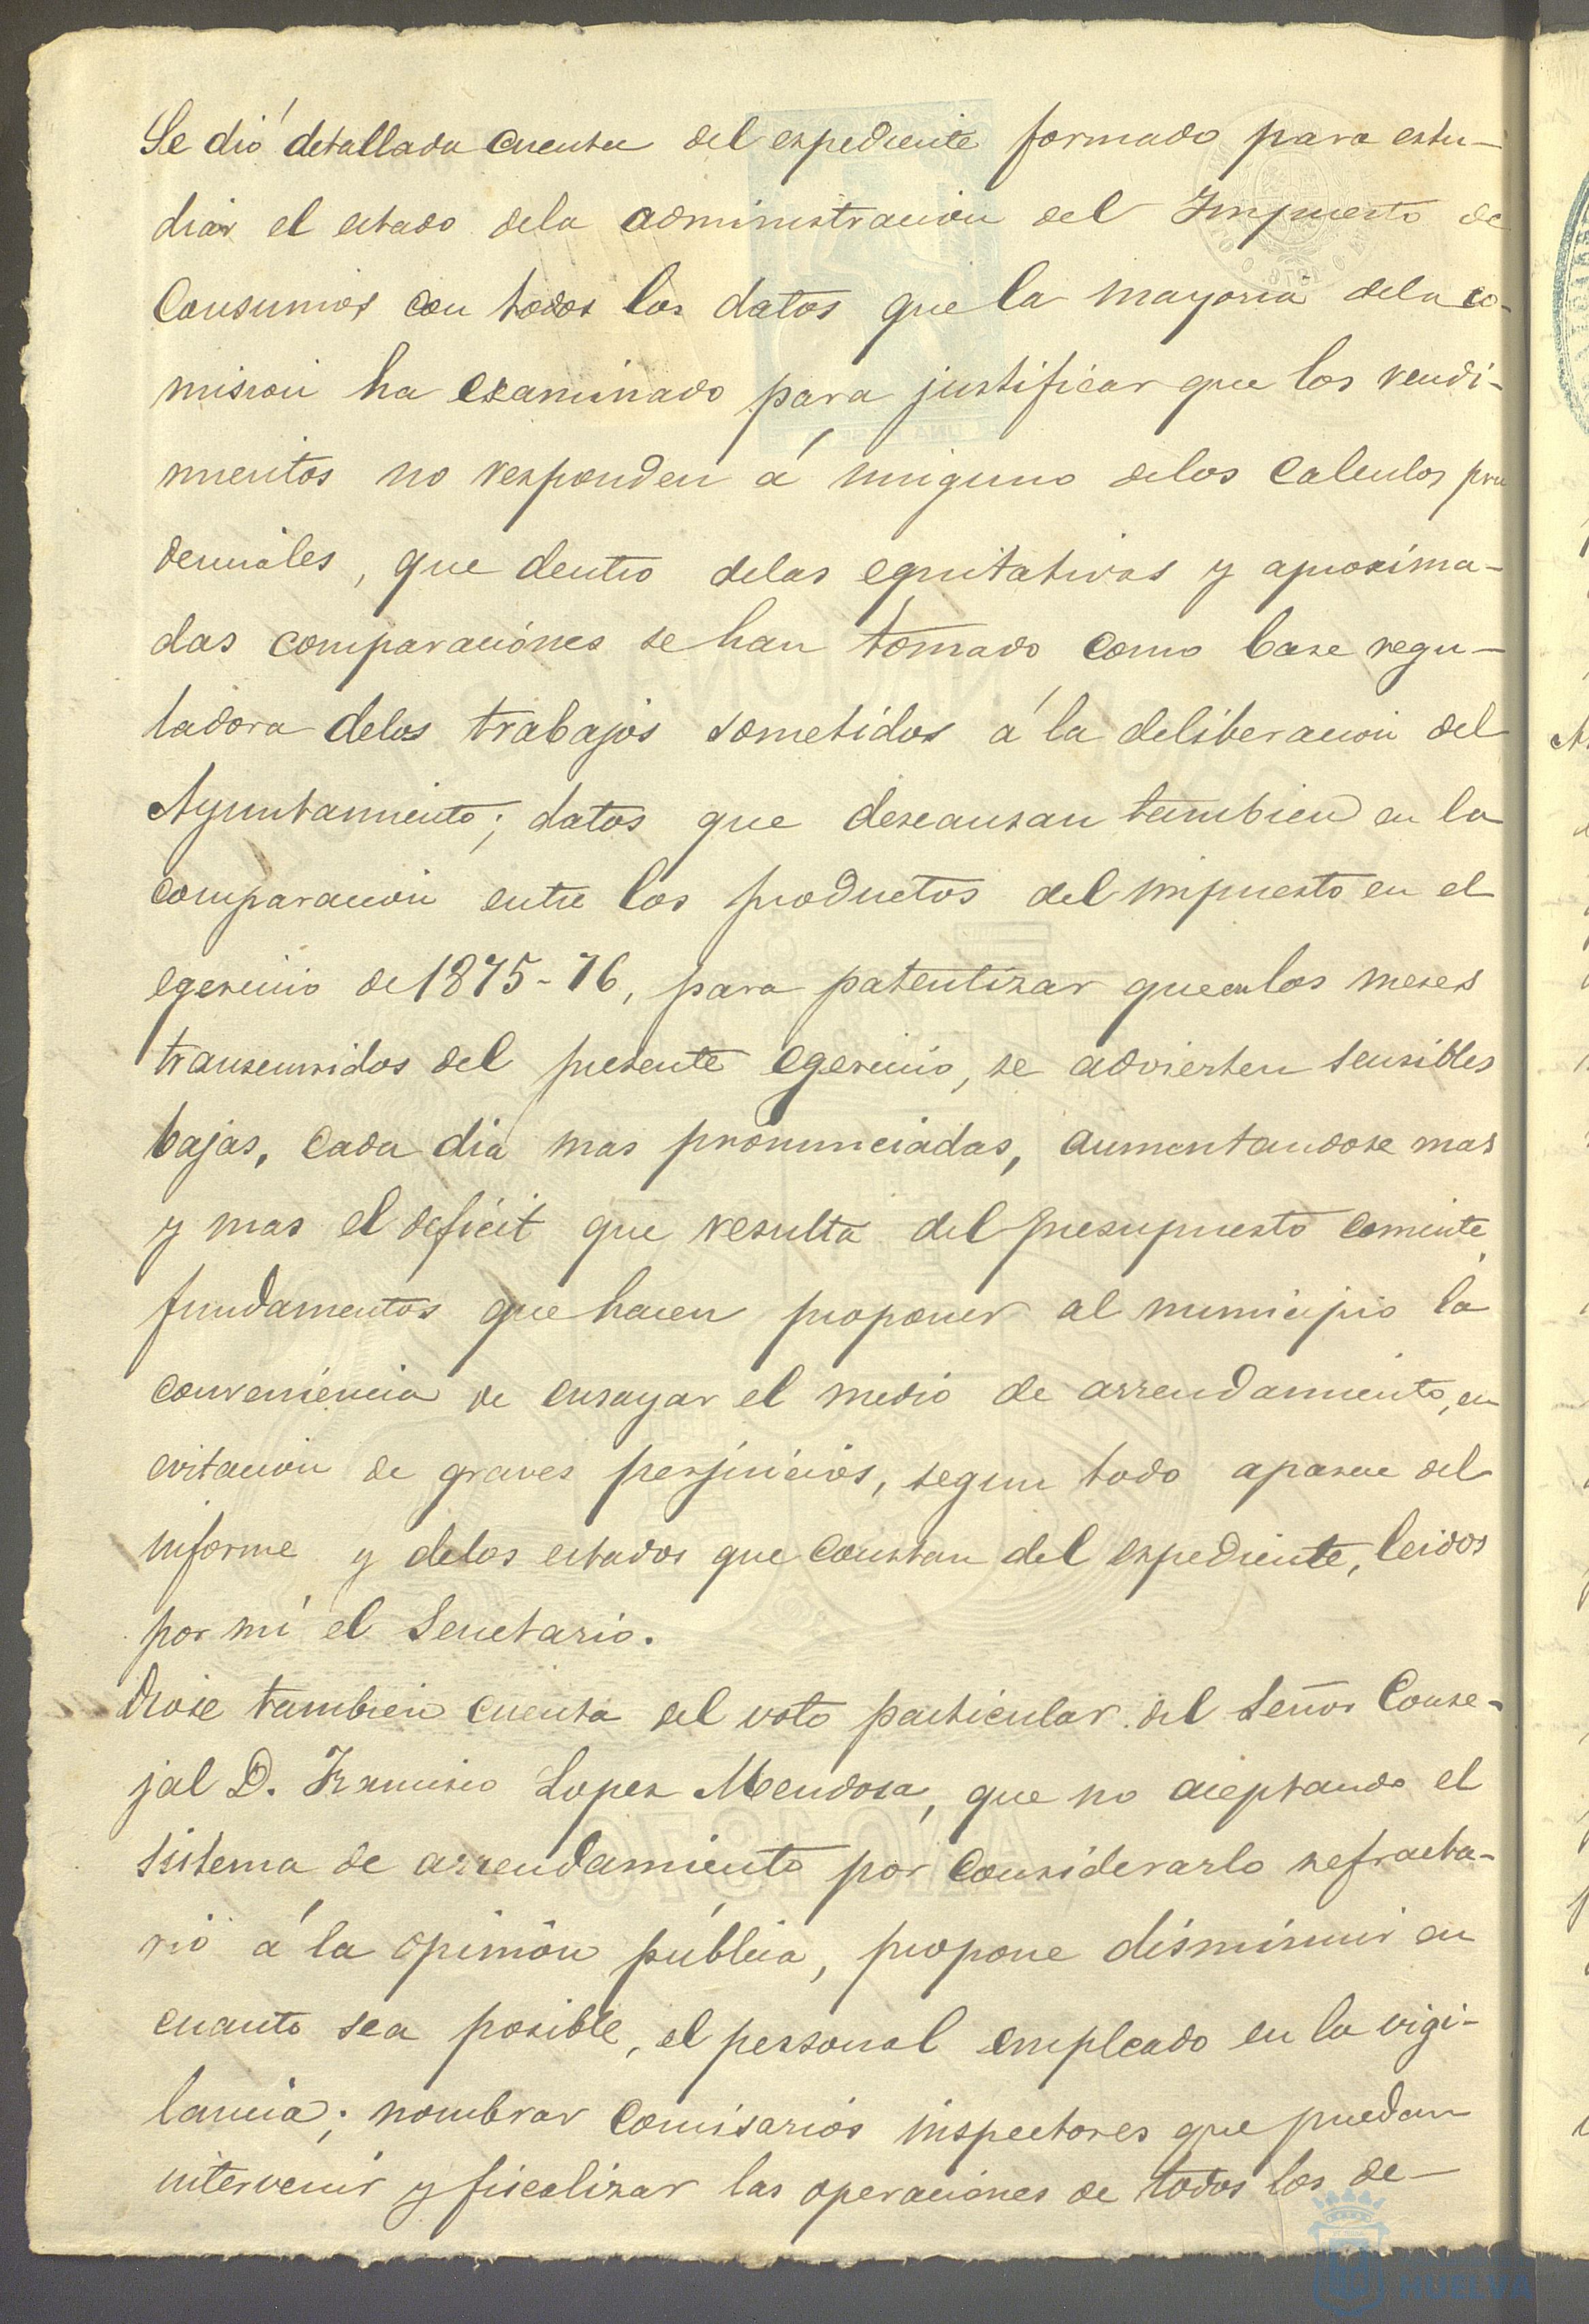 Se dió detallada cuenta del espediente formado para estu-
diar el estado dela administracion del Impuesto de
Consumos con todos los datos que la mayoria dela co-
mision ha examinado para justificar que los rendi-
mientos no responden á ninguno delos calculos pru
denciales, que dentro delas equitativas y aproxima-
das comparaciónes se han tomado como base regu-
ladora delos trabajos sometidos á la deliberacion del
Ayuntamiento; datos que descansan tambien en la
comparacion entre los productos del impuesto en el
egercicio de 1875-76, para patentizar que en los meses
transcurridos del presente egercicio, se advierten sensibles
bajas, cada dia mas pronunciadas, aumentandose mas
y mas el deficit que resulta del presupuesto corriente,
fundamentos que hacen proponer al municipio la
conveniencia de ensayar el medio de arrendamiento, en
evitacion de graves perjuicios, segun todo aparece del
informe y delos estados que constan del espediente, leidos
por mí el Secretario.
Diose tambien cuenta del voto particular del Señor Conce-
jal D. Francisco Lopez Mendosa, que no aceptando el
sistema de arrendamiento por considerarlo refracta-
rio á la opinion pública, propone disminuir en
cuanto sea posible, el personal empleado en la vigi-
lancia; nombrar Comisarios inspectores que puedan
intervenir y fiscalizar las operaciones de todos los de-
HUELVA